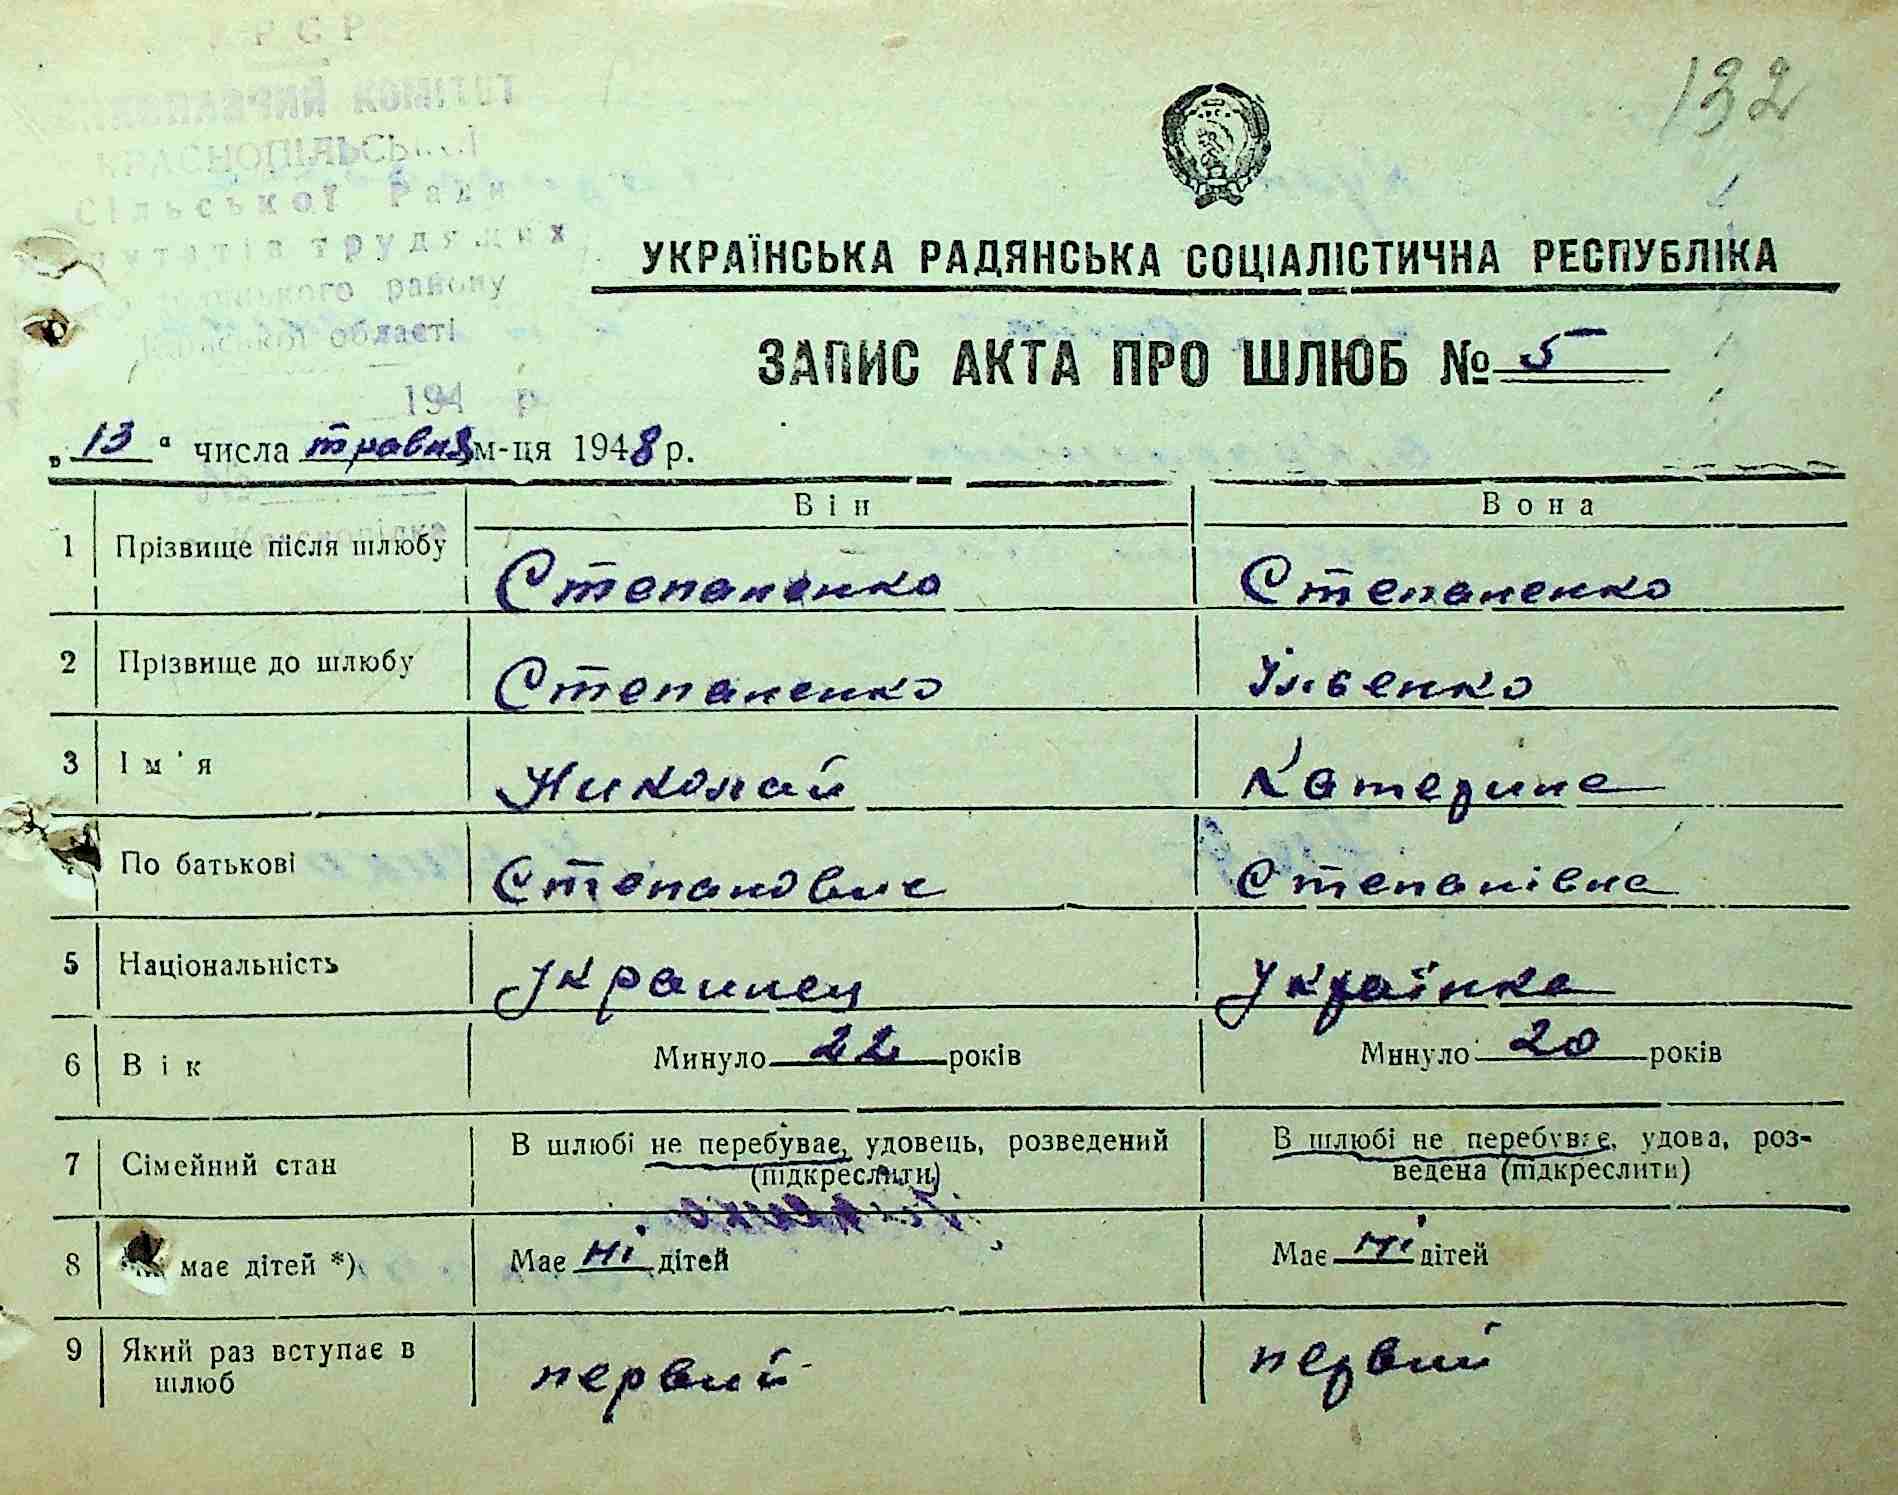 УРСР
ВИКОНАВЧИЙ КОМІТЕТ
КРАСНОПІЛЬСЬКОЇ
Сільської Ради
депутатів трудящих
району
області
194 р
132
УКРАЇНСЬКА РАДЯНСЬКА СОЦІАЛІСТИЧНА РЕСПУБЛІКА
ЗАПИС АКТА ПРО ШЛЮБ № 5
„13“ числа травня м-ця 1948 р.
Він Вона
1 Прізвище після шлюбу Степаненко Степаненко
2 Прізвище до шлюбу Степаненко Ільєнко
3 Ім'я Николай Катерина
4 По батькові Степанович Степанівна
5 Національність Украинец Українка
6 Вік Минуло 22 років Минуло 20 років
7 Сімейний стан В шлюбі не перебуває, удовець, розведений (підкреслити) В шлюбі не перебуває, удова, розведена (підкреслити)
8 Чи має дітей *) Має ні дітей Має ні дітей
9 Який раз вступає в шлюб первий первий